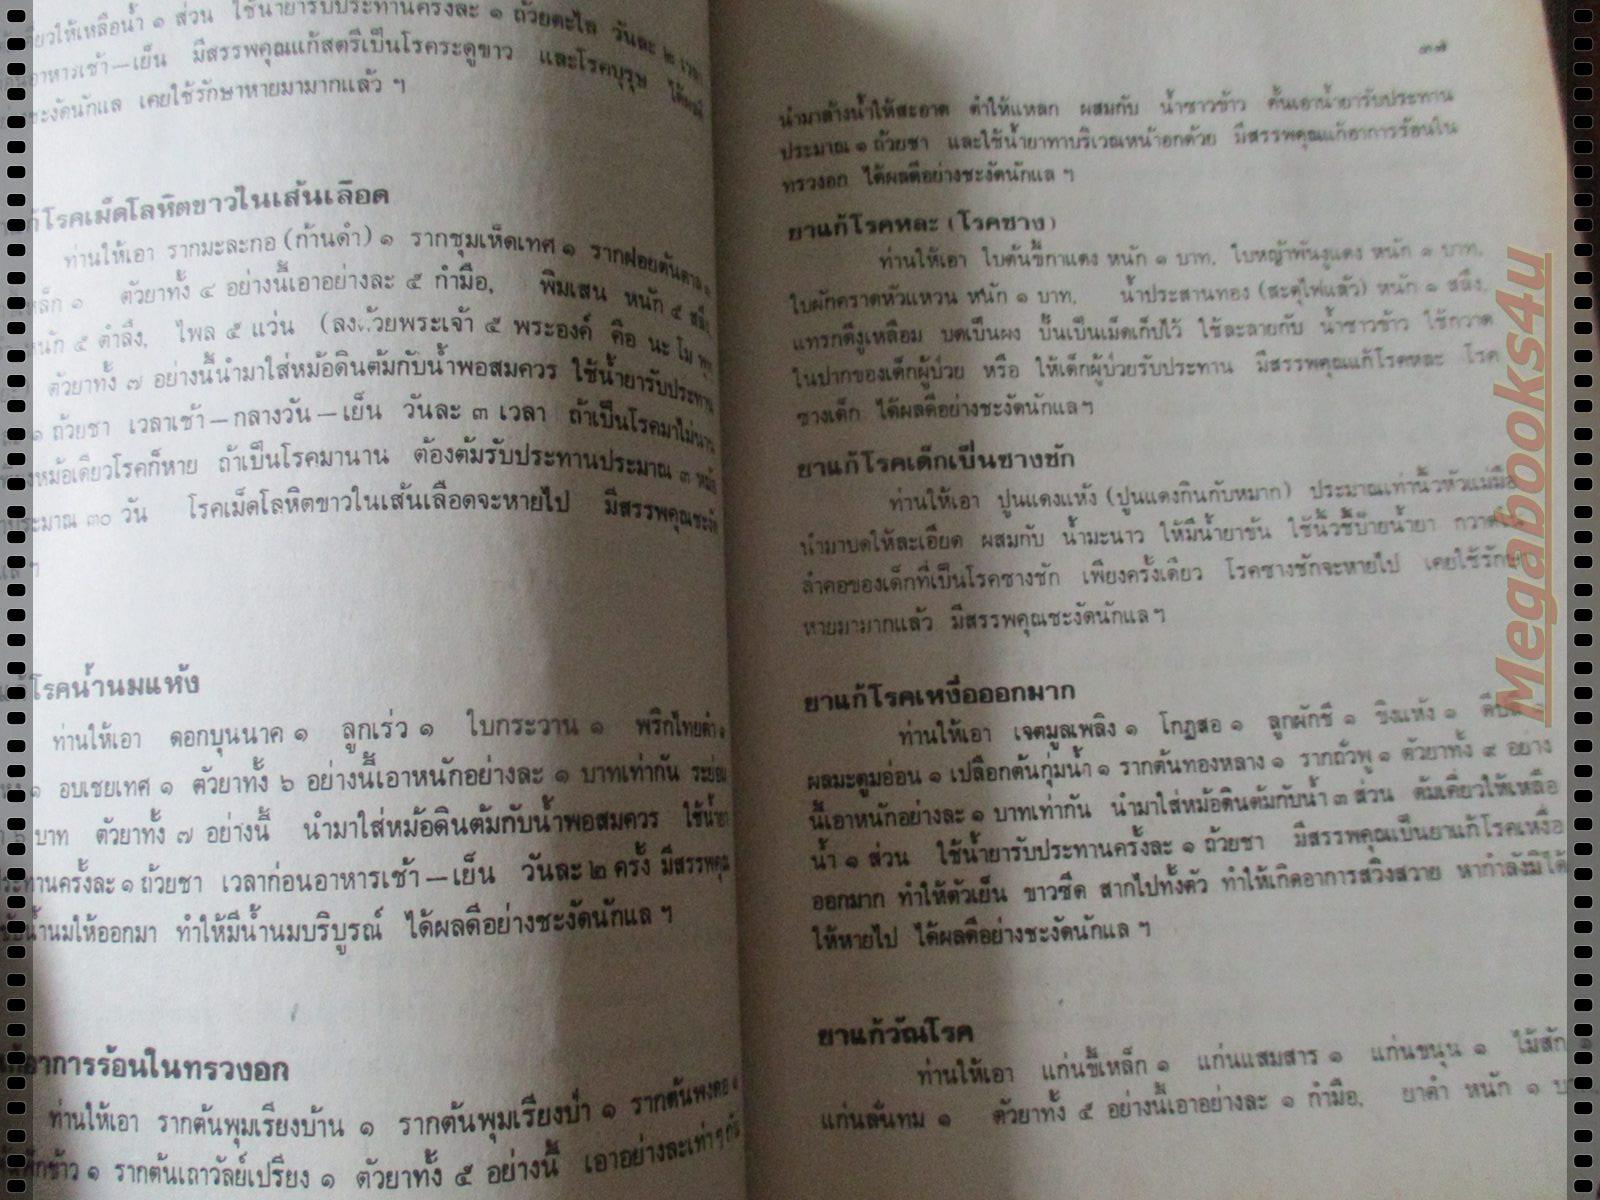 ให้เหลือน้ำ ๑ ส่วน ใช้น้ำยารับประทานครั้งละ ๑ ถ้วยตะไล วันละ ๒ เวลา
อาหารเช้า – เย็น มีสรรพคุณแก้สตรีเป็นโรคระดูขาว และโรคบุรุษ ได้ผลดี
ชะงัดนักแล เคยใช้รักษาหายมามากแล้ว ฯ
แก้โรคเม็ดโลหิตขาวในเส้นเลือด
ท่านให้เอา รากมะละกอ (ก้านดำ) ๑ รากชุมเห็ดเทศ ๑ รากฝอยต้นตาล ๑
เหล็ก ๑ ตัวยาทั้ง ๔ อย่างนี้เอาอย่างละ ๕ กำมือ, พิมเสน หนัก ๕ สลึง,
หนัก ๕ ตำลึง, ไพล ๕ แว่น (ลงด้วยพระเจ้า ๕ พระองค์ คือ นะ โม พุท
ตัวยาทั้ง ๗ อย่างนี้นำมาใส่หม้อดินต้มกับน้ำพอสมควร ใช้น้ำยารับประทาน
๑ ถ้วยชา เวลาเช้า – กลางวัน – เย็น วันละ ๓ เวลา ถ้าเป็นโรคมาไม่นาน
หม้อเดียวโรคก็หาย ถ้าเป็นโรคมานาน ต้องต้มรับประทานประมาณ ๓ หม้อ
ประมาณ ๓๐ วัน โรคเม็ดโลหิตขาวในเส้นเลือดจะหายไป มีสรรพคุณชะงัด
แล ฯ
แก้โรคน้ำนมแห้ง
ท่านให้เอา ดอกบุนนาค ๑ ลูกเร่ว ๑ ใบกระวาน ๑ พริกไทยดำ ๑
๑ อบเชยเทศ ๑ ตัวยาทั้ง ๖ อย่างนี้เอาหนักอย่างละ ๑ บาทเท่ากัน ระย่อม
๖ บาท ตัวยาทั้ง ๗ อย่างนี้ นำมาใส่หม้อดินต้มกับน้ำพอสมควร ใช้น้ำยา
ประทานครั้งละ ๑ ถ้วยชา เวลาก่อนอาหารเช้า – เย็น วันละ ๒ ครั้ง มีสรรพคุณ
น้ำนมให้ออกมา ทำให้มีน้ำนมบริบูรณ์ ได้ผลดีอย่างชะงัดนักแล ฯ
แก้อาการร้อนในทรวงอก
ท่านให้เอา รากต้นพุมเรียงบ้าน ๑ รากต้นพุมเรียงป่า ๑ รากต้นพงดอ ๑
๑ รากต้นเถาวัลย์เปรียง ๑ ตัวยาทั้ง ๕ อย่างนี้ เอาอย่างละเท่าๆ กัน
๓๗
นำมาล้างน้ำให้สะอาด ตำให้แหลก ผสมกับ น้ำซาวข้าว คั้นเอาน้ำยารับประทาน
ประมาณ ๑ ถ้วยชา และใช้น้ำยาทาบริเวณหน้าอกด้วย มีสรรพคุณแก้อาการร้อนใน
ทรวงอก ได้ผลดีอย่างชะงัดนักแล ฯ
ยาแก้โรคหละ (โรคซาง)
ท่านให้เอา ใบต้นขี้กาแดง หนัก ๑ บาท, ใบหญ้าพันงูแดง หนัก ๑ บาท,
ใบผักคราดหัวแหวน หนัก ๑ บาท, น้ำประสานทอง (สะตุไฟแล้ว) หนัก ๑ สลึง,
แทรกดีงูเหลือม บดเป็นผง ปั้นเป็นเม็ดเก็บไว้ ใช้ละลายกับ น้ำซาวข้าว ใช้กวาด
ในปากของเด็กผู้ป่วย หรือ ให้เด็กผู้ป่วยรับประทาน มีสรรพคุณแก้โรคหละ โรค
ซางเด็ก ได้ผลดีอย่างชะงัดนักแลฯ
ยาแก้โรคเด็กเป็นซางชัก
ท่านให้เอา ปูนแดงแห้ง (ปูนแดงกินกับหมาก) ประมาณเท่านิ้วหัวแม่มือ
นำมาบดให้ละเอียด ผสมกับ น้ำมะนาว ให้มีน้ำยาข้น ใช้นิ้วชี้ป้ายน้ำยา กวาด
ลำคอของเด็กที่เป็นโรคซางชัก เพียงครั้งเดียว โรคซางชักจะหายไป เคยใช้รักษา
หายมามากแล้ว มีสรรพคุณชะงัดนักแลฯ
ยาแก้โรคเหงื่อออกมาก
ท่านให้เอา เจตมูลเพลิง ๑ โกฎสอ ๑ ลูกผักชี ๑ ขิงแห้ง ๑ ดีปลี ๑
ผลมะตูมอ่อน ๑ เปลือกต้นกุ่มน้ำ ๑ รากต้นทองหลาง ๑ รากถั่วพู ๑ ตัวยาทั้ง ๙ อย่าง
นี้เอาหนักอย่างละ ๑ บาทเท่ากัน นำมาใส่หม้อดินต้มกับน้ำ ๓ ส่วน ต้มเคี่ยวให้เหลือ
น้ำ ๑ ส่วน ใช้น้ำยารับประทานครั้งละ ๑ ถ้วยชา มีสรรพคุณเป็นยาแก้โรคเหงื่อ
ออกมาก ทำให้ตัวเย็น ขาวซีด สากไปทั้งตัว ทำให้เกิดอาการสวิงสวาย หากำลังมิได้
ให้หายไป ได้ผลดีอย่างชะงัดนักแล ฯ
ยาแก้วัณโรค
ท่านให้เอา แก่นขี้เหล็ก ๑ แก่นแสมสาร ๑ แก่นขนุน ๑ ไม้สัก ๑
แก่นลั่นทม ๑ ตัวยาทั้ง ๕ อย่างนี้เอาอย่างละ ๑ กำมือ, ยาดำ หนัก ๑
Megabooks4u